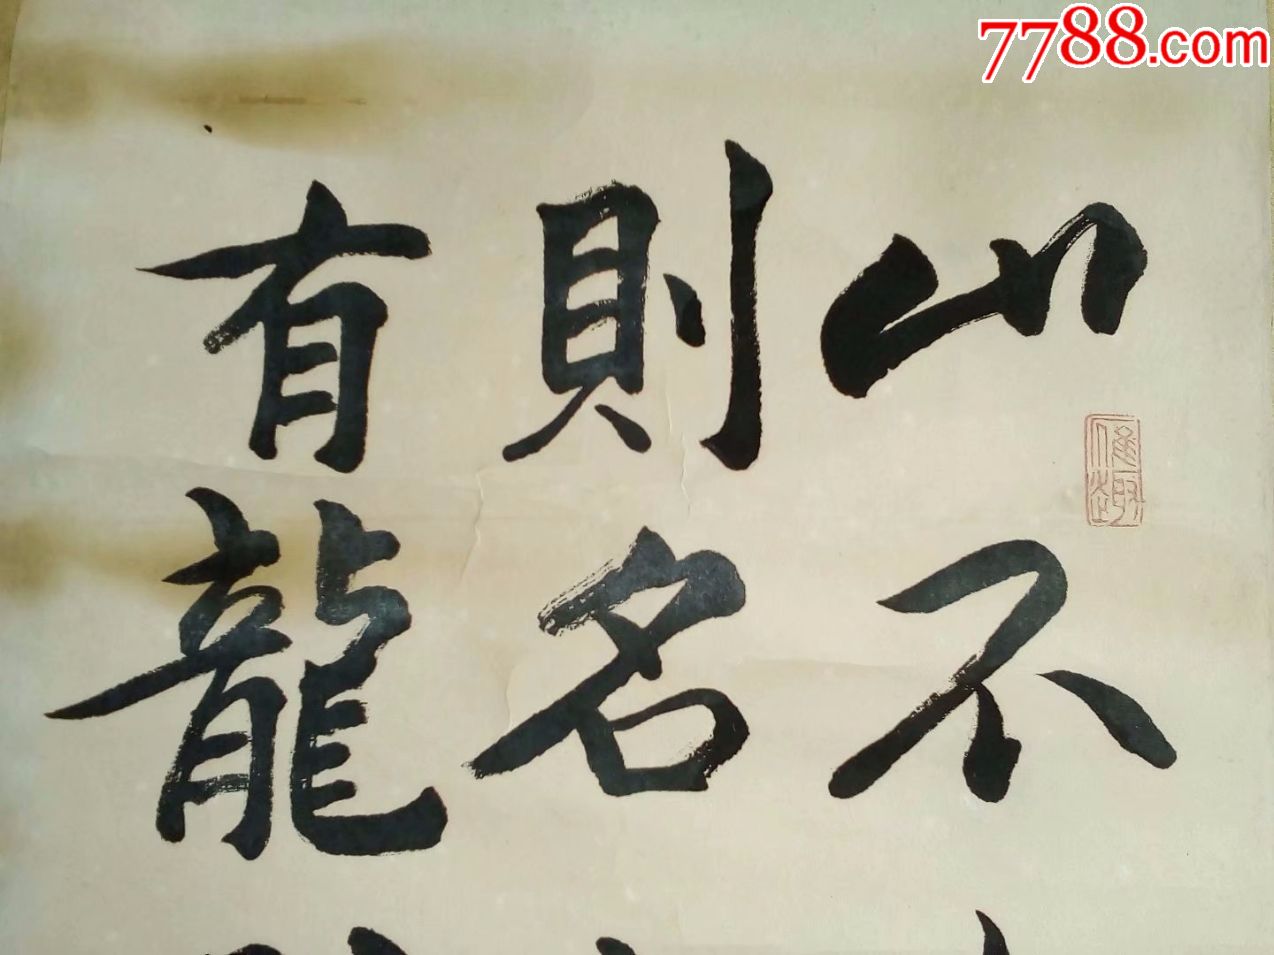 7788.com
山不
則名
有龍